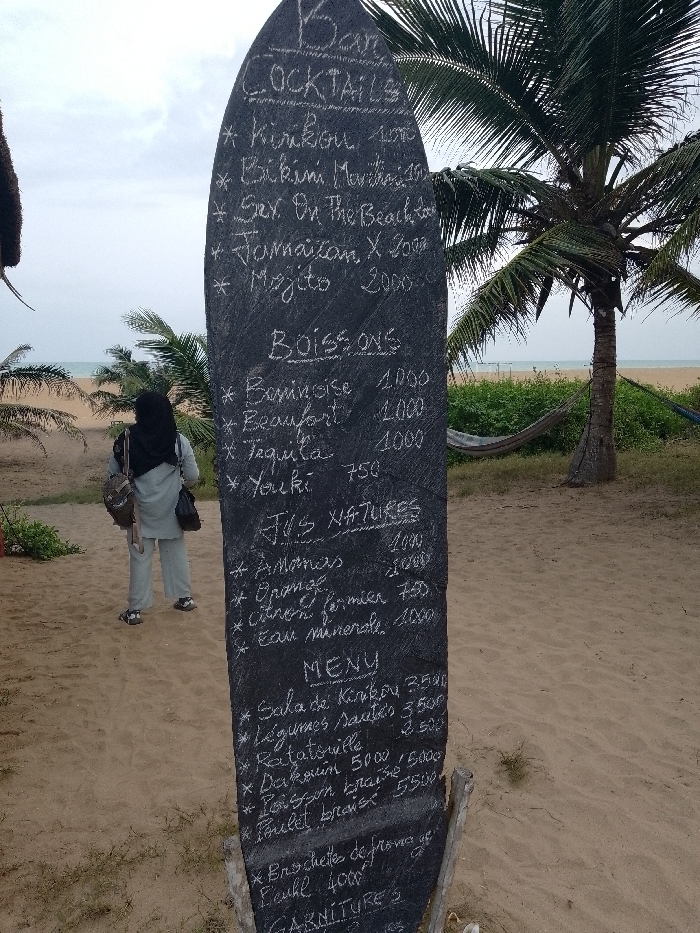 Bar
COCKTAILS
* Kirikou 1000
* Bikini Martini
* Sex On The Beach
* Jamaïcan X 2000
* Mojito 2000
BOISSONS
* Beninoise 1000
* Beaufort 1000
* Tequila 1000
* Youki 750
JUS NATURES
* Ananas 1000
* Orange 1000
* Citron fermier 750
* Eau minerale 1000
MENU
* Salade Kirikou 3500
* Légumes sautés 3500
* Ratatouille 2500
* Dakouin 5000
* Poisson braisé 5000
* Poulet braisé 5500
* Brochettes de fromage
Peuhl 4000
GARNITURES